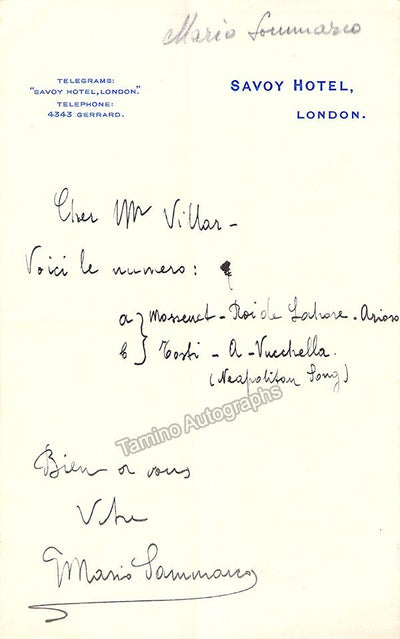 Mario Sammarco
TELEGRAMS:
"SAVOY HOTEL, LONDON."
TELEPHONE:
4343 GERRARD.
SAVOY HOTEL,
LONDON.
Cher Mr Villar -
Voici le numero:
a } Massenet - Roi de Lahore - Arioso
b } Tosti - A - Vucchella.
(Neapolitan Song)
Tamino Autographs
Bien a vous
Votre
GMario Sammarco